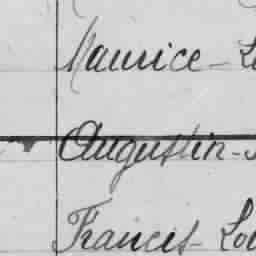 Maurice - L
Augustin -
Francis - Lou